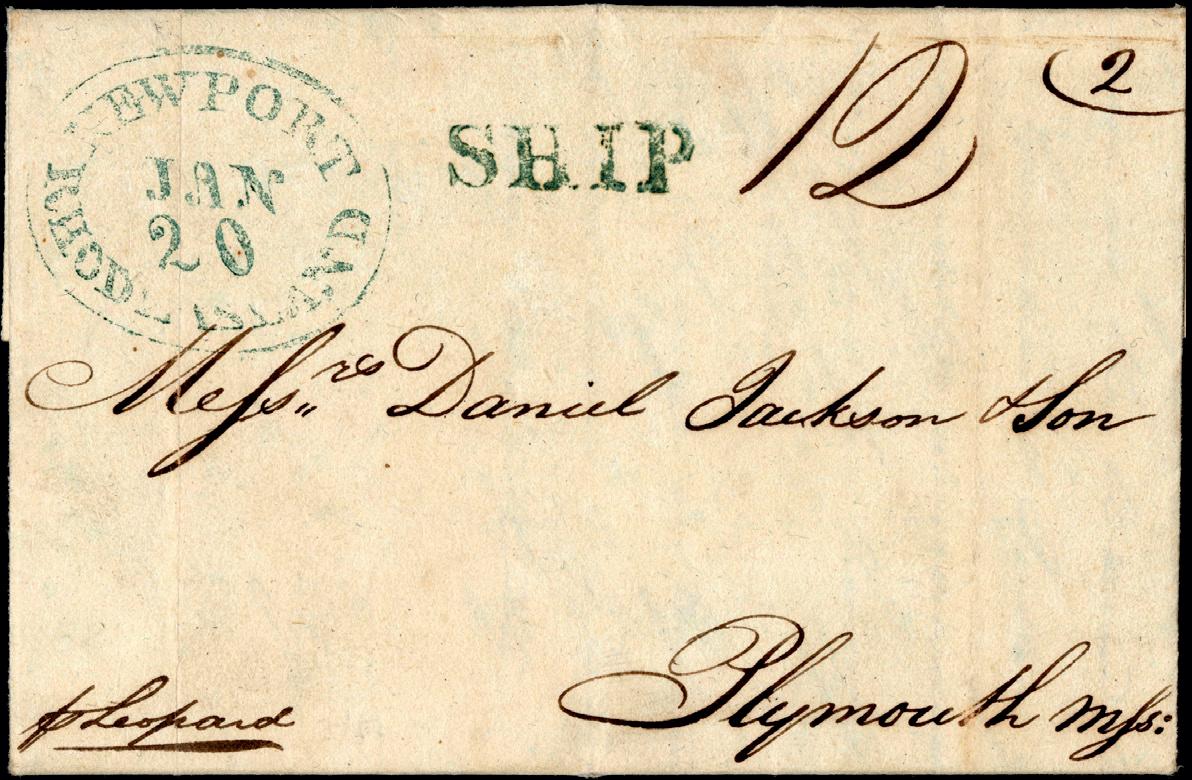 NEWPORT
JAN
20
RHODE ISLAND
SHIP
12
2
Messrs Daniel Jackson & Son
Plymouth Mss:
p Leopard